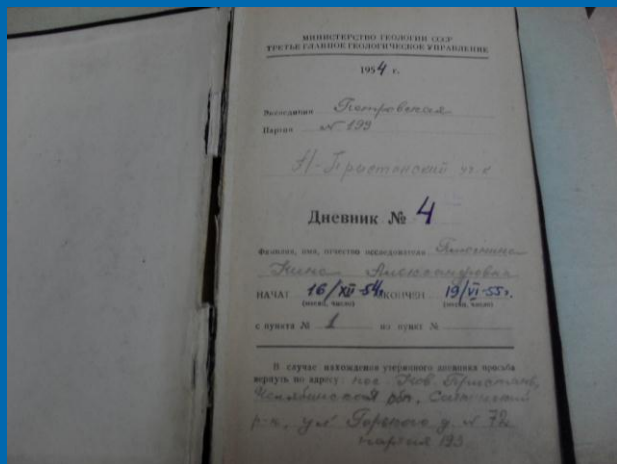 МИНИСТЕРСТВО ГЕОЛОГИИ СССР
ТРЕТЬЕ ГЛАВНОЕ ГЕОЛОГИЧЕСКОЕ УПРАВЛЕНИЕ
1954 г.
Экспедиция Петровская
Партия № 193
Н-Пристанский уч-к
Дневник № 4
Фамилия, имя, отчество исследователя
Нина Александровна
НАЧАТ 16/XII-54г. ОКОНЧЕН 19/VI-55г.
(месяц, число) (месяц, число)
с пункта № 1 по пункт №
В случае нахождения утерянного дневника просьба
вернуть по адресу: пос. Нов. Пристань,
Челябинской обл.,
р-н, ул Горького д. № 72
партия 193